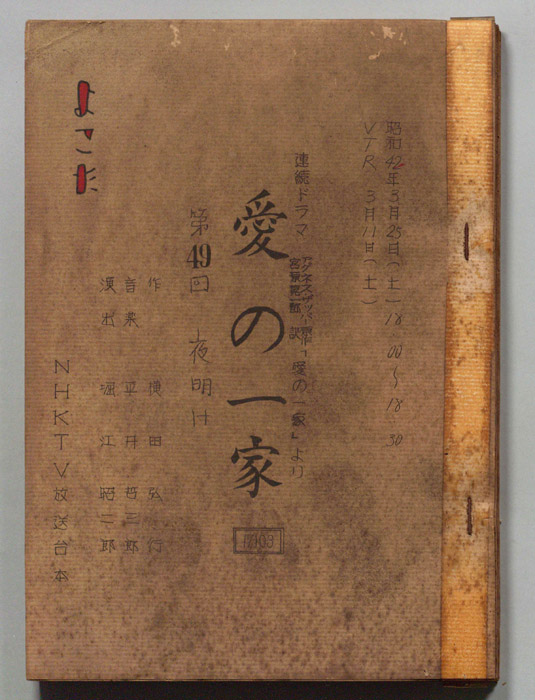 昭和42年3月25日(土)18:00〜18:30
VTR 3月11日(土)
連続ドラマ
「愛の一家」より
愛の一家
第49回 夜明け
作 横田弘行
音楽 平井哲三郎
演出 堀江昭二郎
NHKTV放送台本
よこた